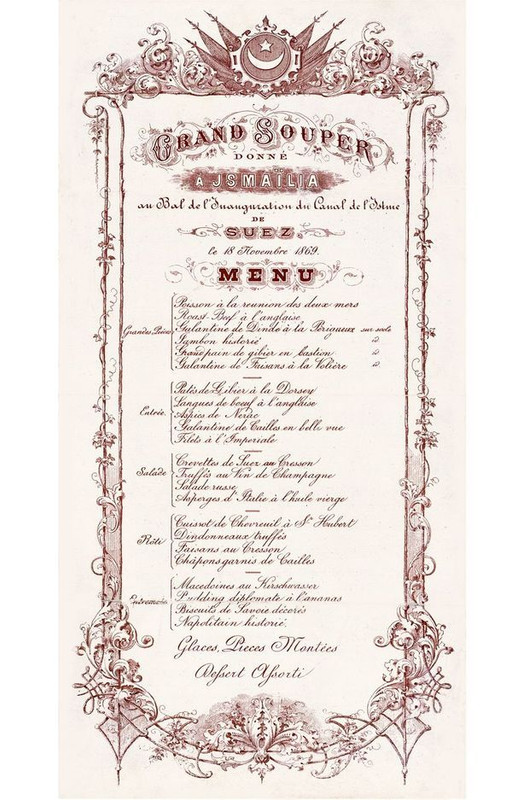 GRAND SOUPER
DONNÉ
À JSMAÏLIA
au Bal de l'Inauguration du Canal de l'Istme
DE
SUEZ
le 18 Novembre 1869.
MENU
Grandes Pièces
Poisson à la reunion des deux mers
Roast Beef à l'anglaise
Galantine de Dinde à la Périgueux sur socle
Jambon historié
Grand pain de gibier en bastion
Galantine de Faisans à la Volière
Entrée
Patés de Gibier à la Dorsey
Langues de boeuf à l'anglaise
Aspics de Nerac
Galantine de Cailles en belle vue
Filets à l'Imperiale
Salade
Crevettes de Suez au Cresson
Truffes au Vin de Champagne
Salade russe
Asperges d'Italie à l'huile vierge
Rôti
Cuissot de Chevreuil à St Hubert
Dindonneaux truffés
Faisans au Cresson
Châpons garnis de Cailles
Entremets
Macedoines au Kirschwasser
Pudding diplomate à l'ananas
Biscuits de Savoie décorés
Napolitain historié.
Glaces, Pieces Montées
Dessert Assorti